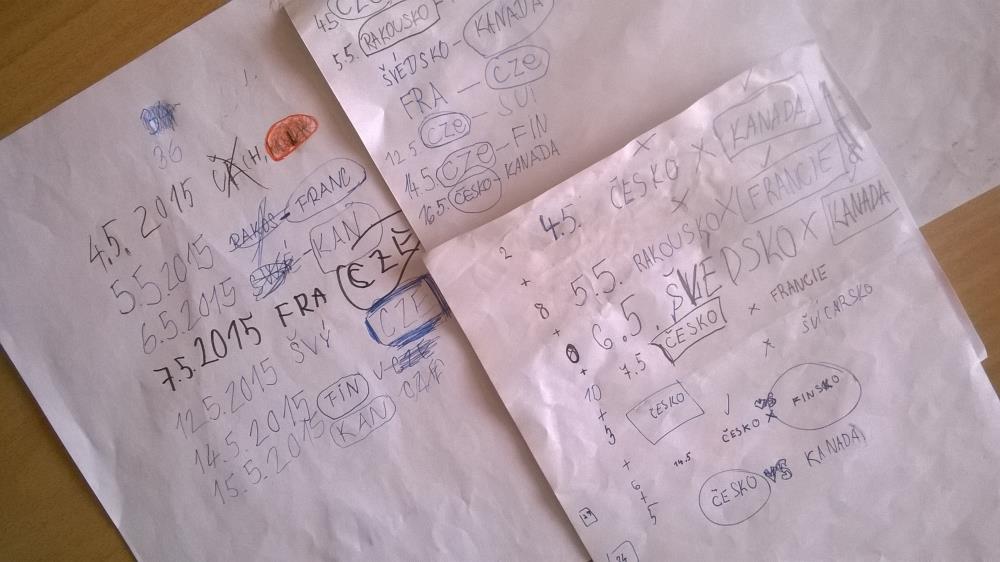 36
4.5. 2015 CH,
5.5.2015 RAKOS - FRANC
6.5.2015 ŠVÉ - KAN
7.5.2015 FRA CZE
12.5.2015 ŠVÝ CZE
14.5.2015 FIN V CZE
15.5.2015 KAN CZE
4.5. CZE
5.5. RAKOUSKO
ŠVÉDSKO - KANADA
FRA - CZE
12.5. CZE - ŠVÝ
14.5. CZE - FIN
16.5. ČESKO KANADA
2 4.5. ČESKO X KANADA
+
8 5.5. RAKOUSKO X FRANCIE
+
0 6.5. ŠVÉDSKO X KANADA
+
10 7.5 ČESKO X FRANCIE
+
5 ČESKO X ŠVÍCARSKO
+
6 14.5 ČESKO X FINSKO
+
5 ČESKO VS KANADA